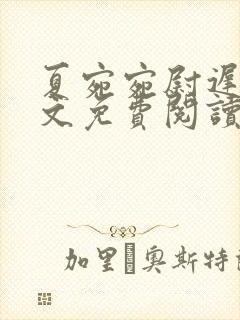 夏宛宛尉遲
文免費閱讀
加里�奧斯特